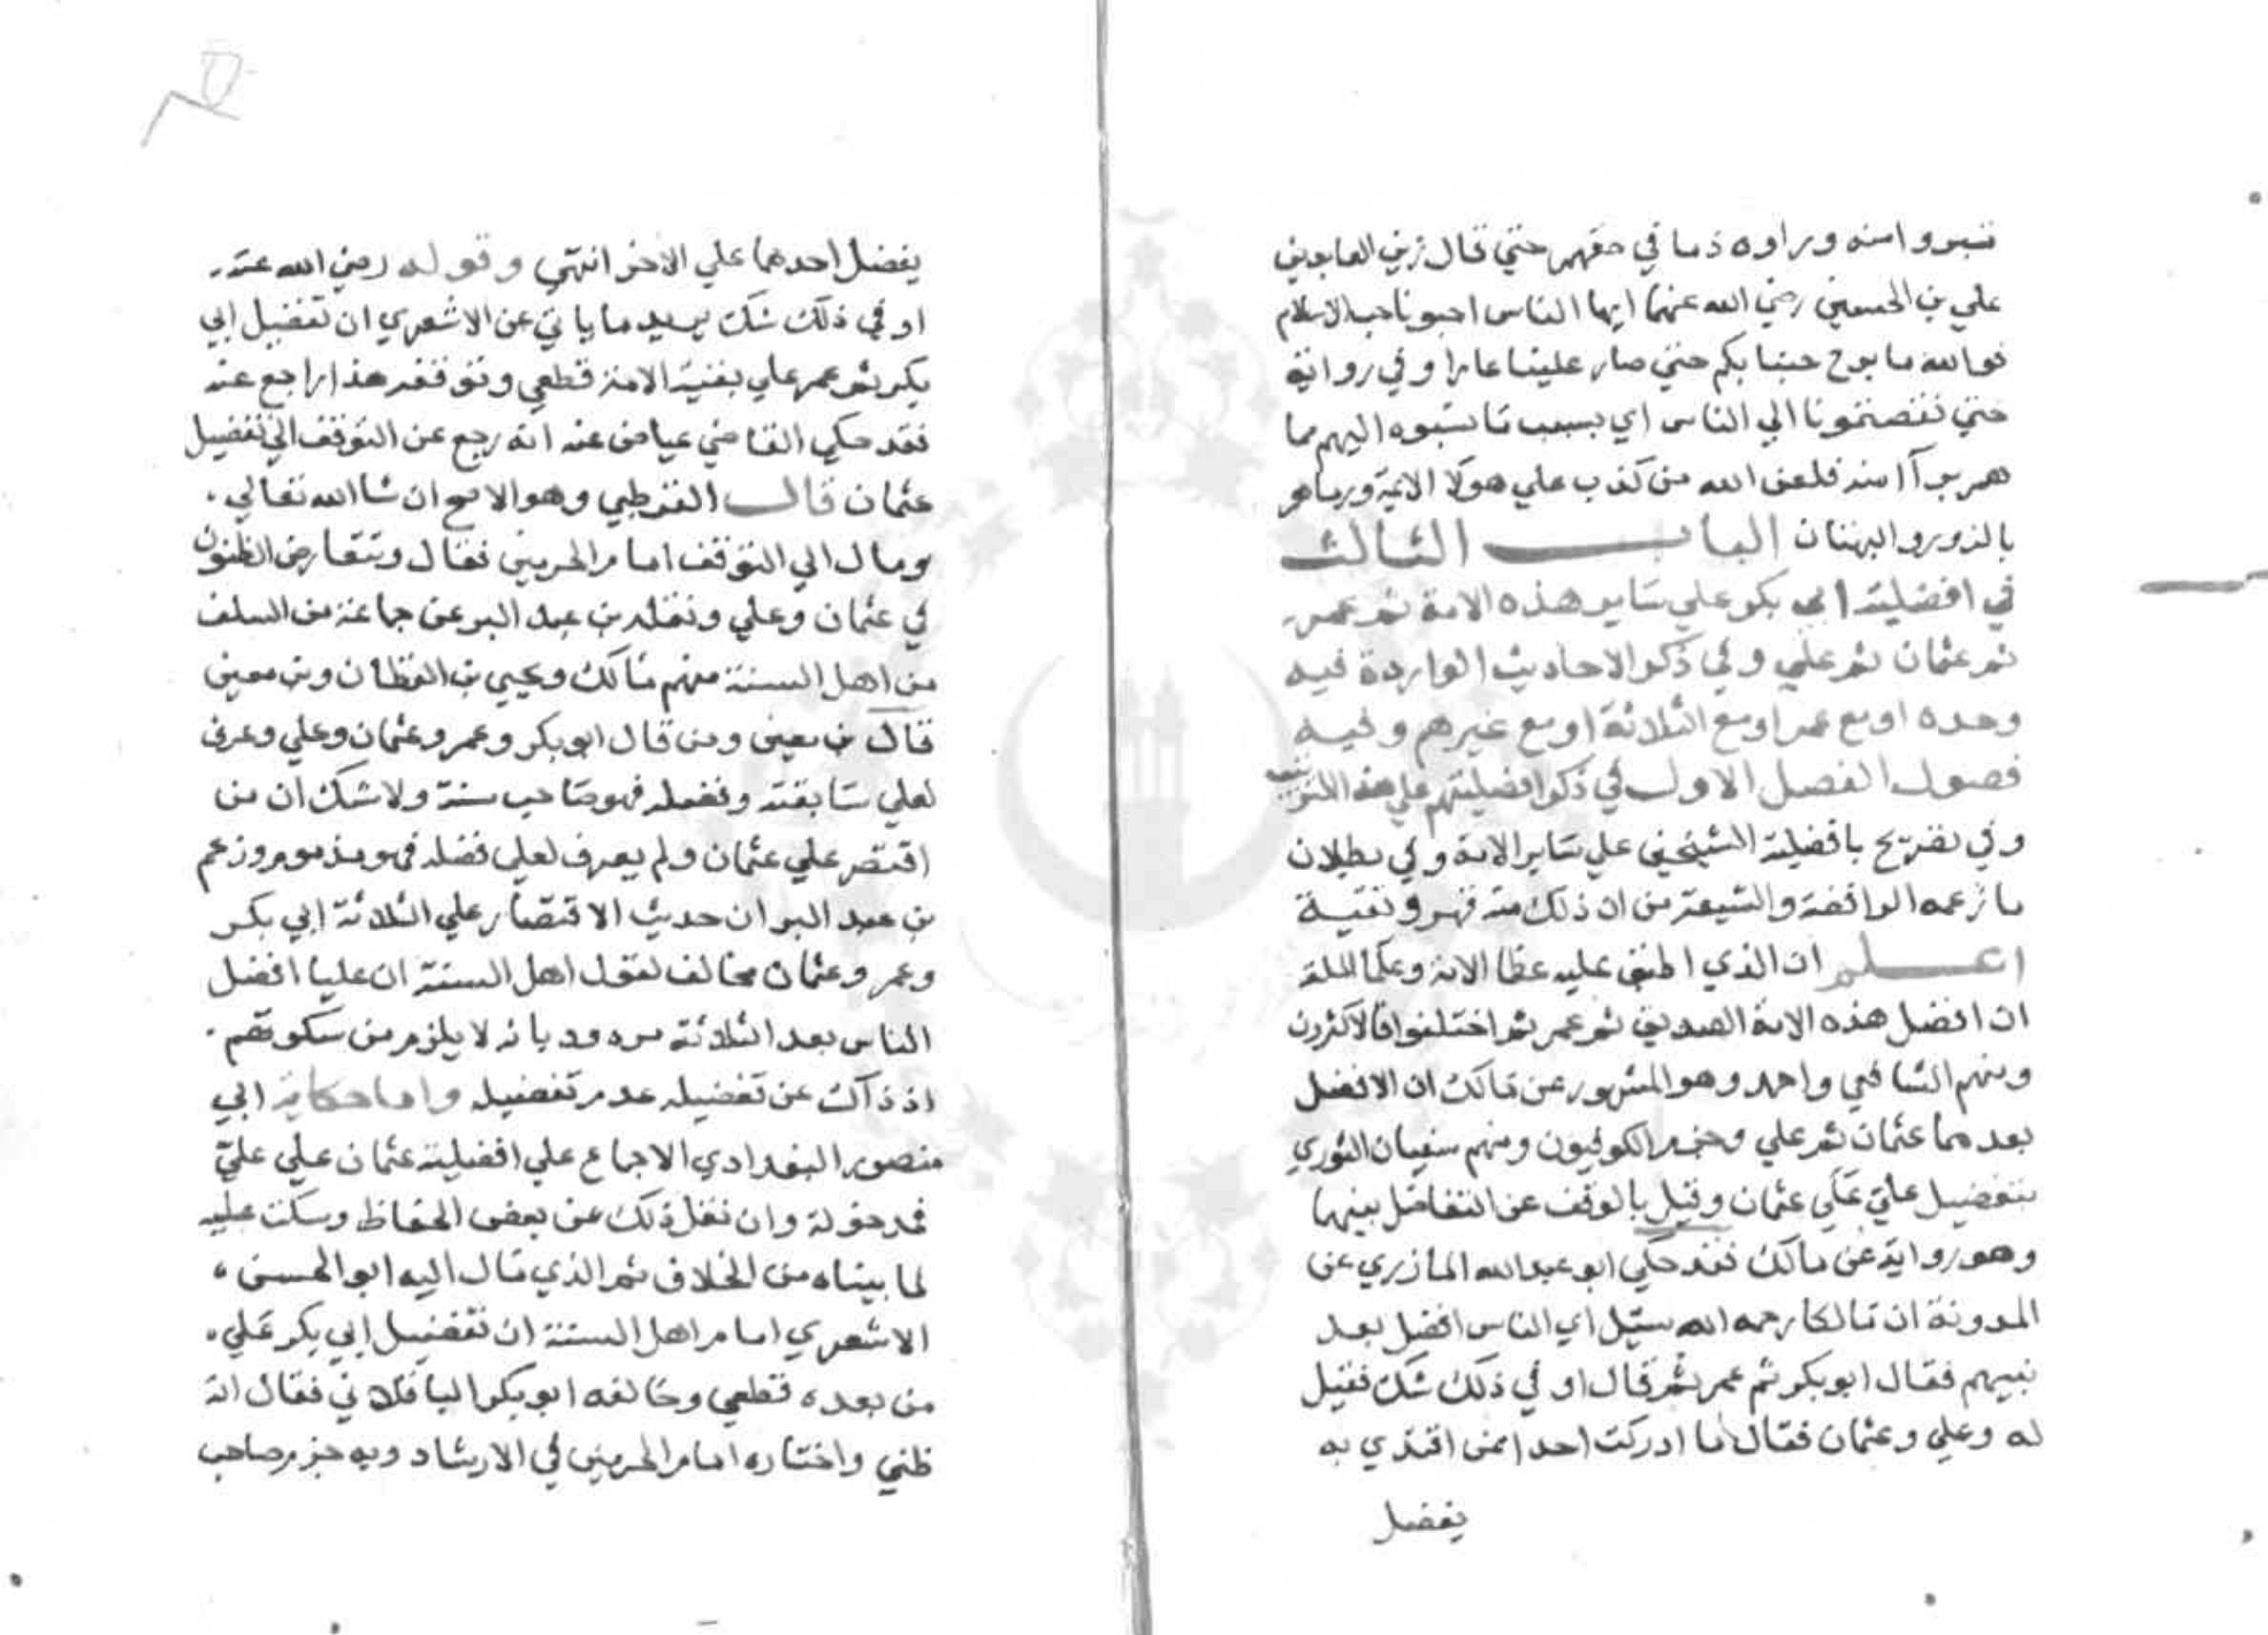 فتبروا منه وراوه ذما في حقهم حتي قال زين العابدين
علي بن الحسين رضي الله عنهما ايها الناس احبونا حب الاسلام
فوالله ما برح حبنا بكم حتي صار علينا عارا وفي رواية
حتي نغصتمونا الي الناس اي بسبب ما نسبوه اليهم مما
هم برآ منه فلعن الله من كذب علي هولا الايمة ورماهم
بالزور والبهتان الباب الثالث
في افضلية ابي بكر علي ساير هذه الامة ثم عمر
ثم عثمان ثم علي وفي ذكر الاحاديث الواردة فيه
وحده او مع عمر او مع الثلاثة او مع غيرهم وفيه
فصول الفصل الاول في ذكر افضليتهم علي هذا الترتيب
وفي تصريح بافضلية الشيخين علي ساير الامة وفي بطلان
ما زعمه الرافضة والشيعة من ان ذلك منه قهر وتقية
اعلم ان الذي اطبق عليه عظما الامة وعلما الملة
ان افضل هذه الامة الصديق ثم عمر ثم اختلفوا فالاكثرون
ومنهم الشافعي واحمد وهو المشهور عن مالك ان الافضل
بعدهما عثمان ثم علي وجزم الكوفيون ومنهم سفيان الثوري
بتفضيل علي علي عثمان وقيل بالوقف عن التفاضل بينهما
وهو رواية عن مالك فقد حكي ابو عبد الله المازري عن
المدونة ان مالكا رحمه الله سئل اي الناس افضل بعد
نبيهم فقال ابو بكر ثم عمر ثم قال او في ذلك شك فقيل
له وعلي وعثمان فقال ما ادركت احدا ممن اقتدي به
يفضل
يفضل احدهما علي الاخر انتهي وقوله رضي الله عنه
او في ذلك شك يريد ما ياتي عن الاشعري ان تفضيل ابي
بكر ثم عمر علي بقية الامة قطعي وتوقفه هذا راجع عنه
فقد حكي القاضي عياض عنه انه رجع عن التوقف الي تفضيل
عثمان قال القرطبي وهو الاصح ان شا الله تعالي
ومال الي التوقف امام الحرمين فقال وتتعارض الظنون
في عثمان وعلي ونقله بن عبد البر عن جماعة من السلف
من اهل السنة منهم مالك ويحيي بن القطان وبن معين
قال بن معين ومن قال ابو بكر وعمر وعثمان وعلي وعرف
لعلي سابقته وفضله فهو صاحب سنة ولا شك ان من
اقتصر علي عثمان ولم يعرف لعلي فضله فهو مذموم وزعم
بن عبد البر ان حديث الاقتصار علي الثلاثة ابي بكر
وعمر وعثمان مخالف لقول اهل السنة ان عليا افضل
الناس بعد الثلاثة مردود بانه لا يلزم من سكوتهم
اذ ذاك عن تفضيله عدم تفضيله واما حكاية ابي
منصور البغدادي الاجماع علي افضلية عثمان علي علي
فمدخولة وان نقل ذلك عن بعض الحفاظ وسكت عليه
لما بيناه من الخلاف ثم الذي مال اليه ابو الحسن
الاشعري امام اهل السنة ان تفضيل ابي بكر علي
من بعده قطعي وخالفه ابو بكر الباقلاني فقال انه
ظني واختاره امام الحرمين في الارشاد وبه جزم صاحب